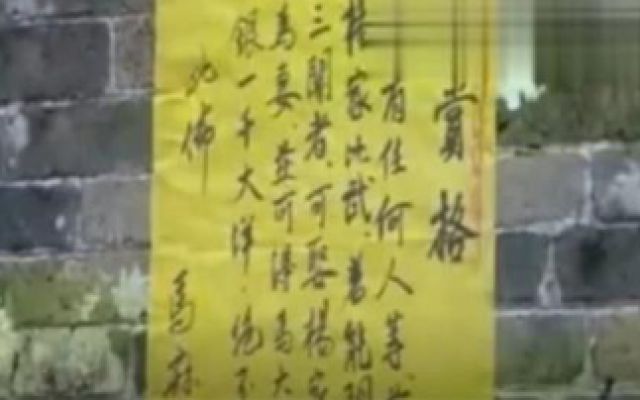 賞格
有任何人等
家比武,若能
三關者,可娶楊家
為妻,並可得馬大
銀一千大洋,絕不
此佈
馬麻